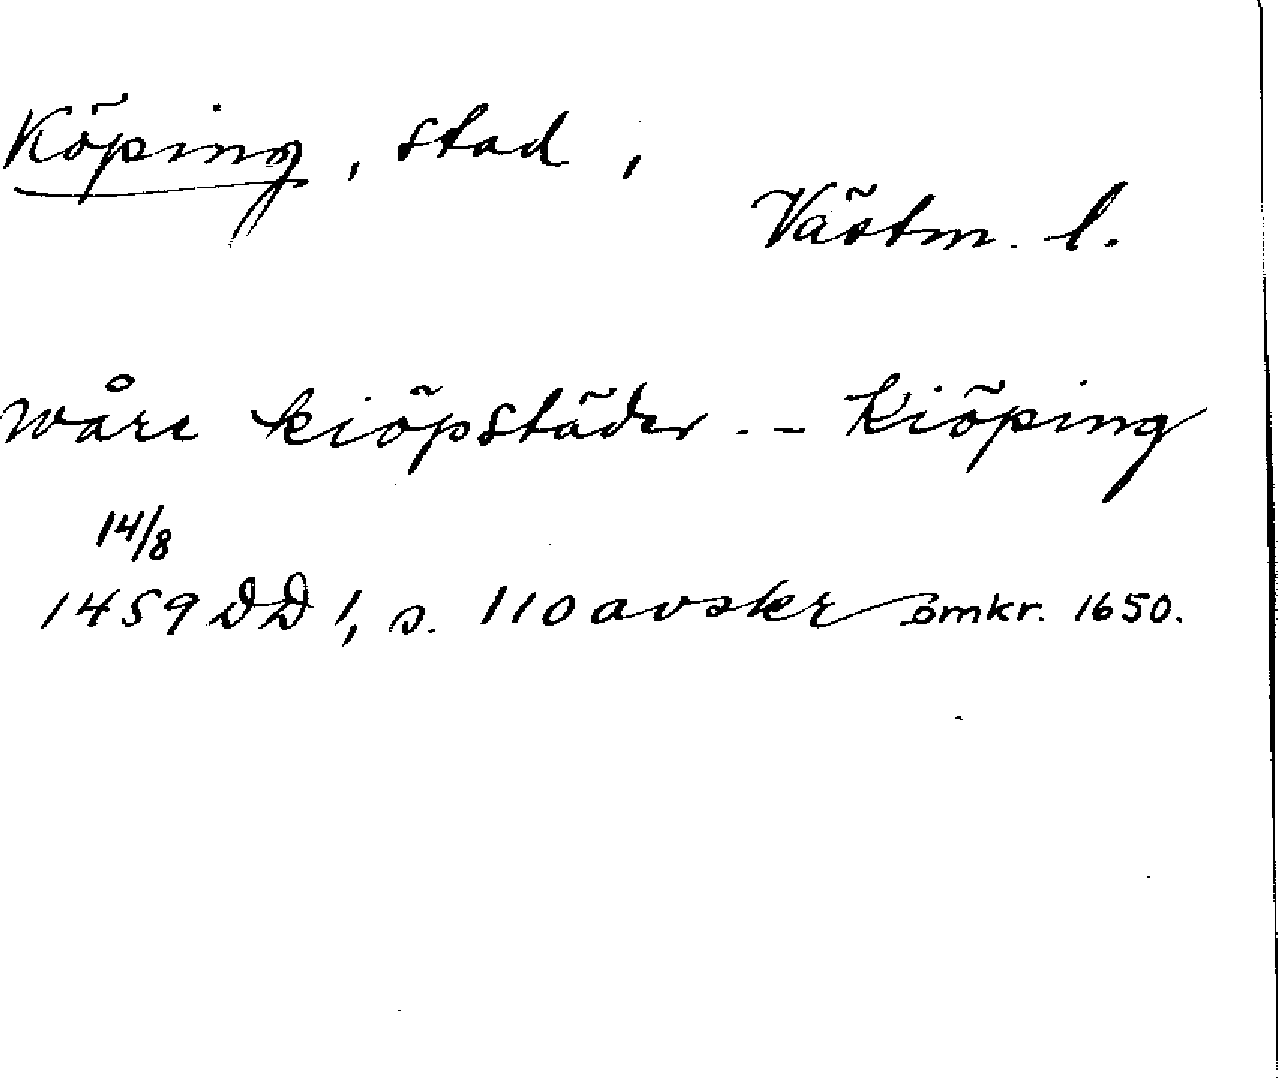 Köping, stad,
Västm. l.
wåre kiöpstäder -- Kiöping
14/8
1459 DD 1, s. 110 avskr omkr. 1650.